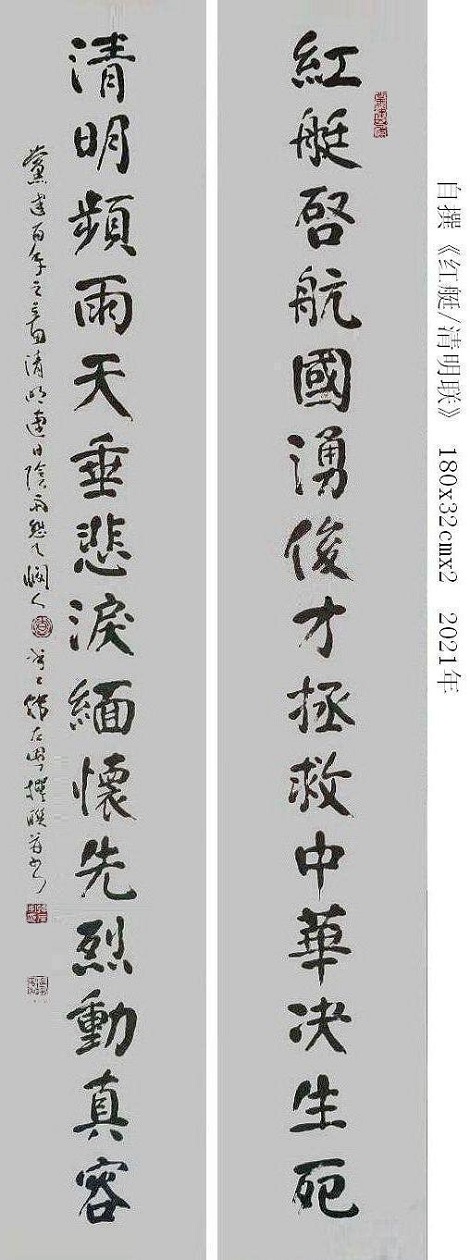 自撰《红艇/清明联》 180x32cmx2 2021年
紅艇啓航國湧俊才拯救中華决生死
清明頻雨天垂悲淚緬懷先烈動真容
黨建百年之 清明連日陰雨 天憫人 撰联并书